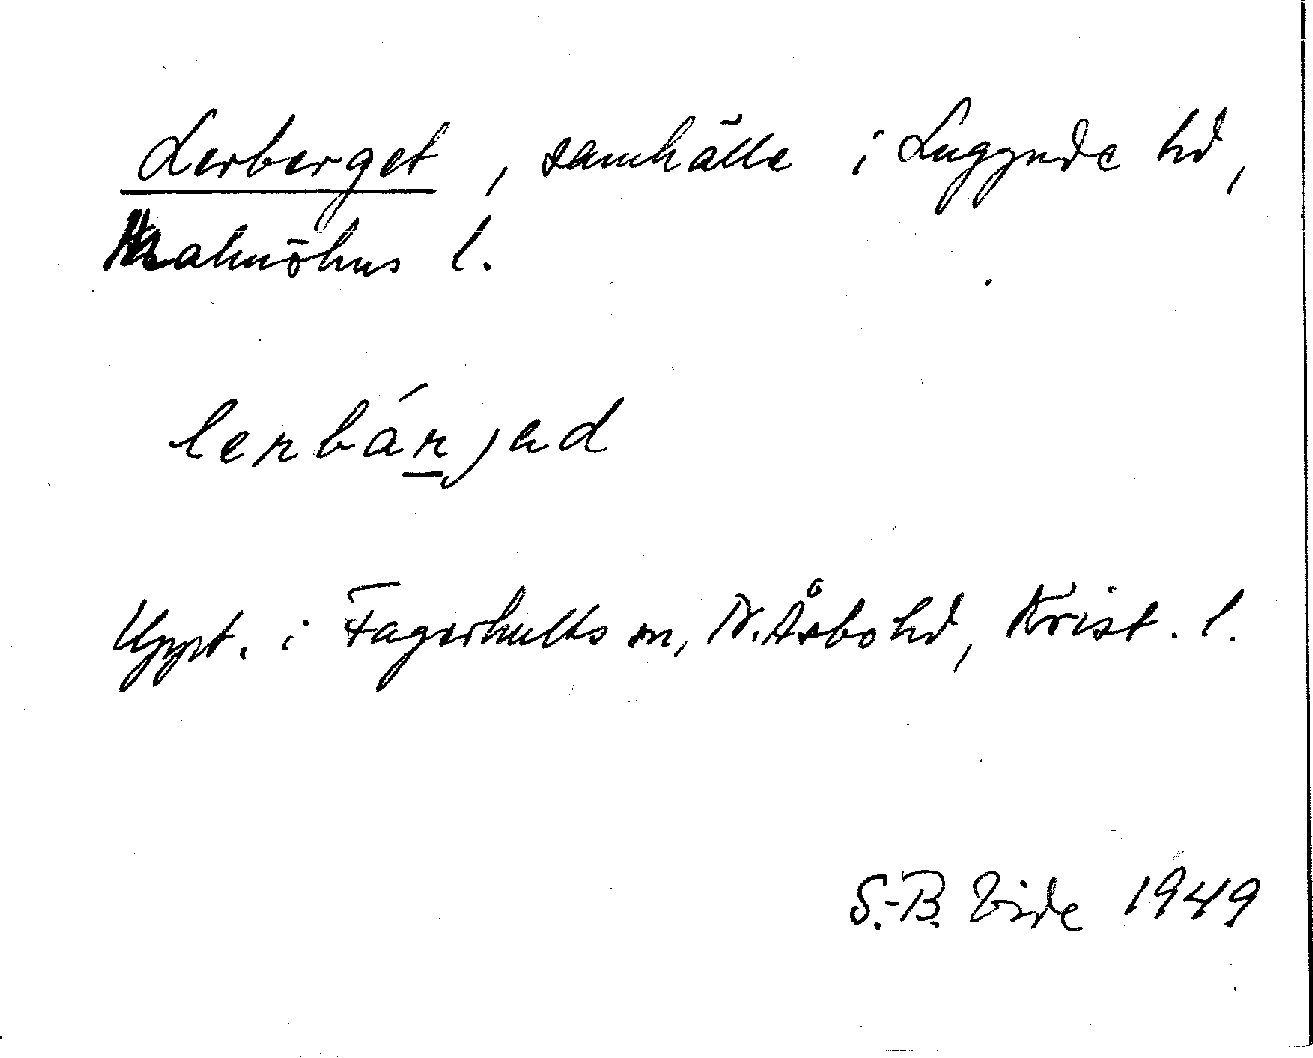 Lerberget, samhälle i Luggude hd,
Malmöhus l.
lerbárjad
Uppt. i Fagerhults sn, N. Åsbo hd, Krist. l.
S.-B. Vide 1949